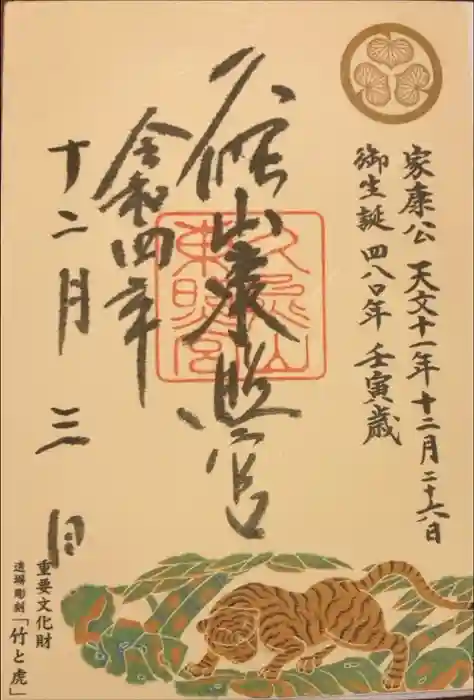 家康公 天文十一年十二月二十六日
御生誕 四八〇年 壬寅歳
久能山東照宮
久能山東照宮
令和四年
十二月 三 日
重要文化財
透塀彫刻「竹と虎」